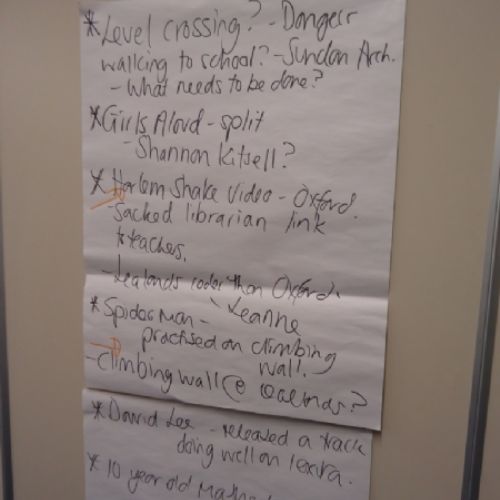 *Level crossing? - Danger
walking to school? - Sundon Arch.
- What needs to be done?
*Girls Aloud - split
- Shannon Kitsell?
* Harlem Shake video - Oxford.
- Sacked librarian link
to teachers.
- Lealands cooler than Oxford.
* Spider Man - Leanne
practised on climbing
wall.
- Climbing wall @ Lealands?
* David Lee - released a track
doing well on 1extra.
* 10 year old